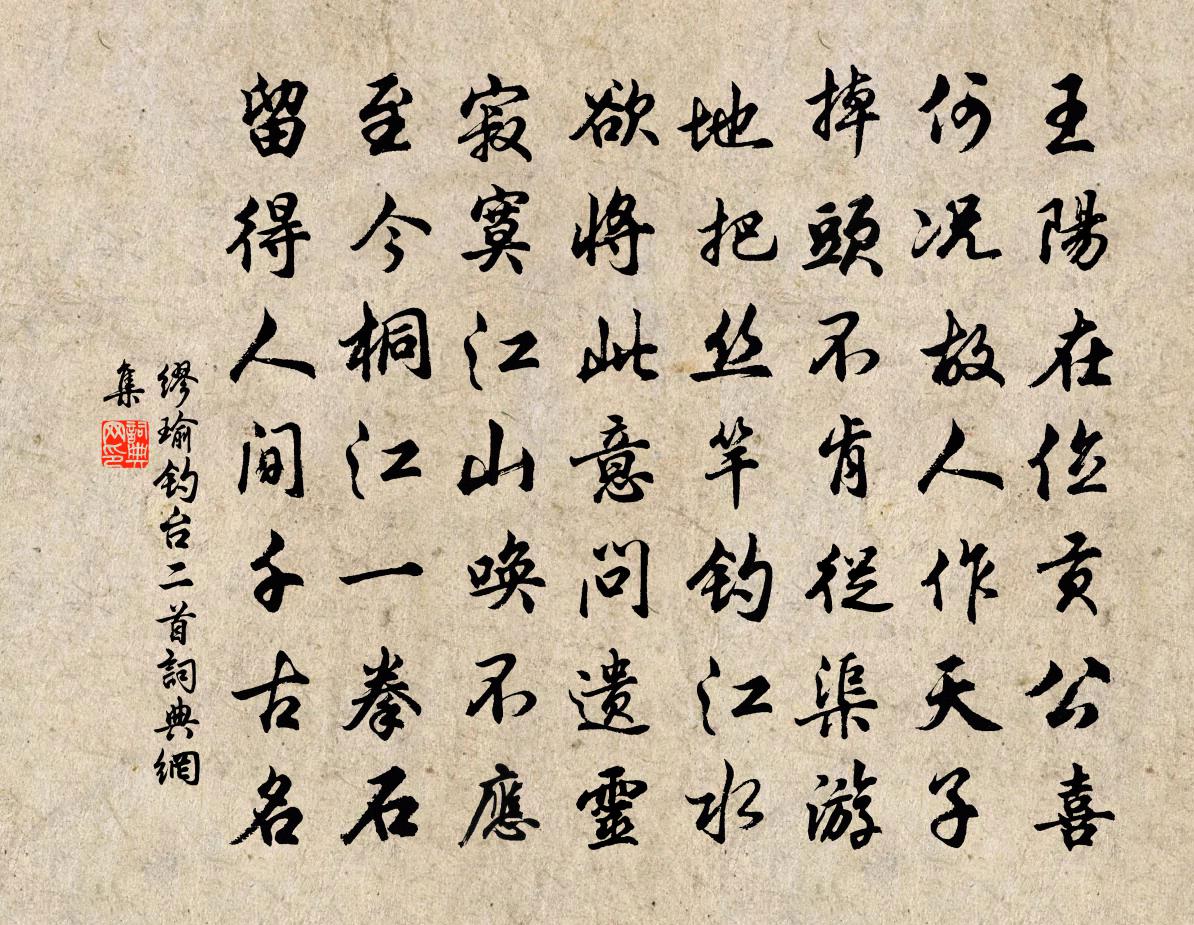 王陽在位贡公喜
何况故人作天子
掉頭不肯從渠游
地把丝竿钓江水
欲將此意問遗靈
寂寞江山唤不應
至今桐江一拳石
留得人间千古名
缪瑜钓台二首詞典網
集
詞典
网印